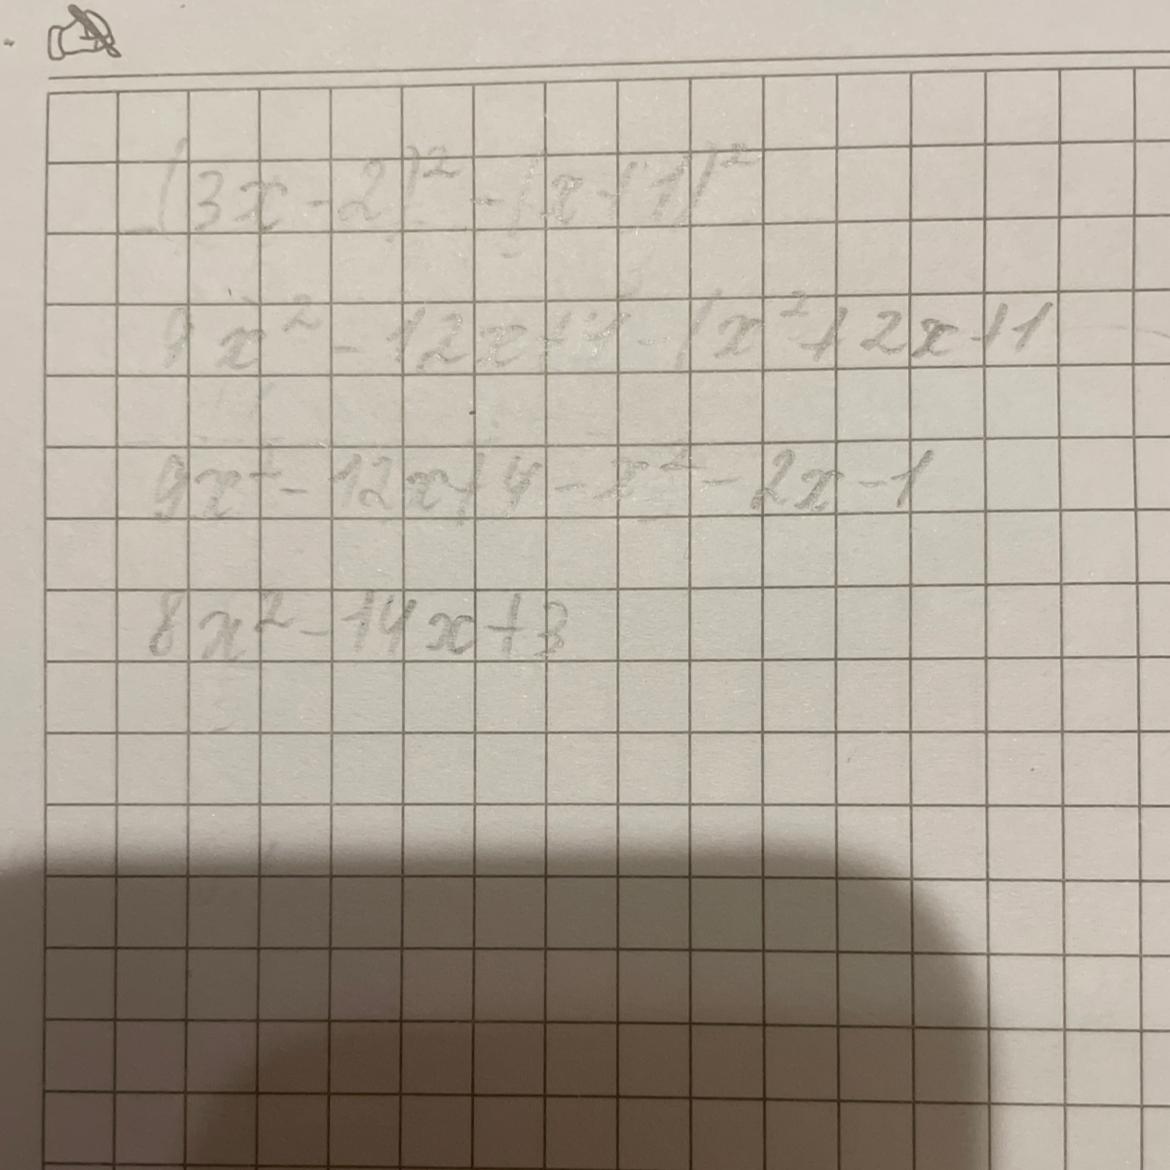 (3x-2)² - (x+1)²
9x² - 12x+4 - (x²+2x+1
9x² - 12x+4 - x² - 2x - 1
8x² - 14x+3